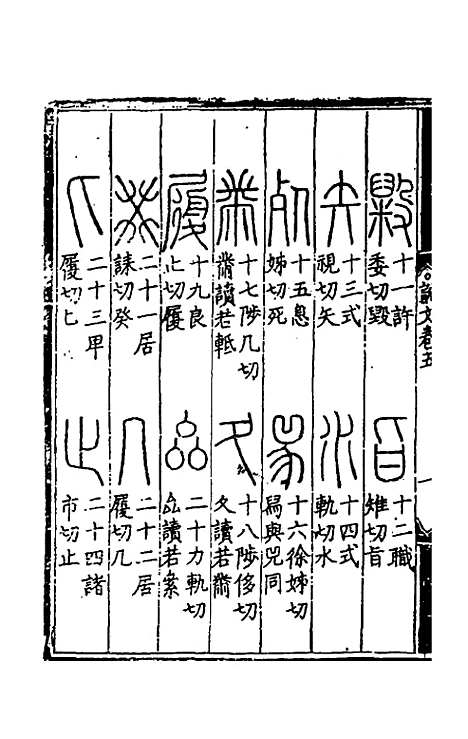 毇 十一許委切毀
𦣻 十二職雉切旨
矢 十三式視切矢
水 十四式軌切水
死 十五息姊切死
𤉡 十六徐姊切舄與兕同
黹 十七陟几切黹讀若軧
夂 十八陟侈切夂讀若黹
履 十九良止切履
厽 二十力軌切厽讀若絫
癸 二十一居誄切癸
几 二十二居履切几
匕 二十三卑履切匕
止 二十四諸市切止
說文卷五